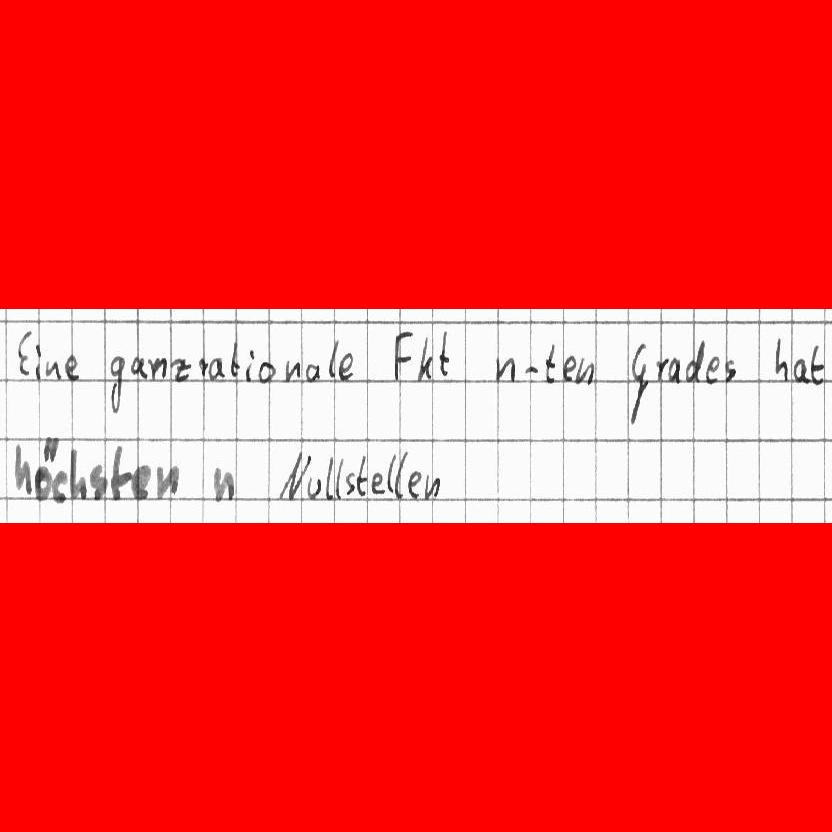 Eine ganzrationale Fkt n-ten Grades hat
höchsten n Nullstellen